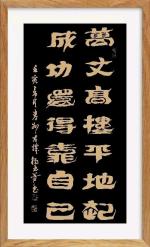 萬丈高樓平地起
成功還得靠自己